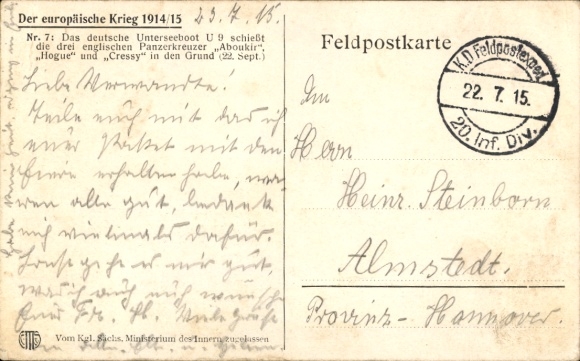 Der europäische Krieg 1914/15
23.7.15.
Nr. 7: Das deutsche Unterseeboot U 9 schießt
die drei englischen Panzerkreuzer „Aboukir“,
„Hogue“ und „Cressy“ in den Grund (22. Sept.)
Liebe Verwandte!
Teile euch mit das ich
euer Paket mit den
Eiern erhalten habe, wa-
ren alle gut, bedank
mich vielmals dafür.
Sonst geht es mir gut,
was ich auch euch wünsche
Viele Grüße
Vom Kgl. Sächs. Ministerium des Innern zugelassen
Feldpostkarte
K.D. Feldpostexped.
22. 7. 15.
20. Inf. Div.
An
Herrn
Heinr. Steinborn
Almstedt.
Provinz-Hannover.